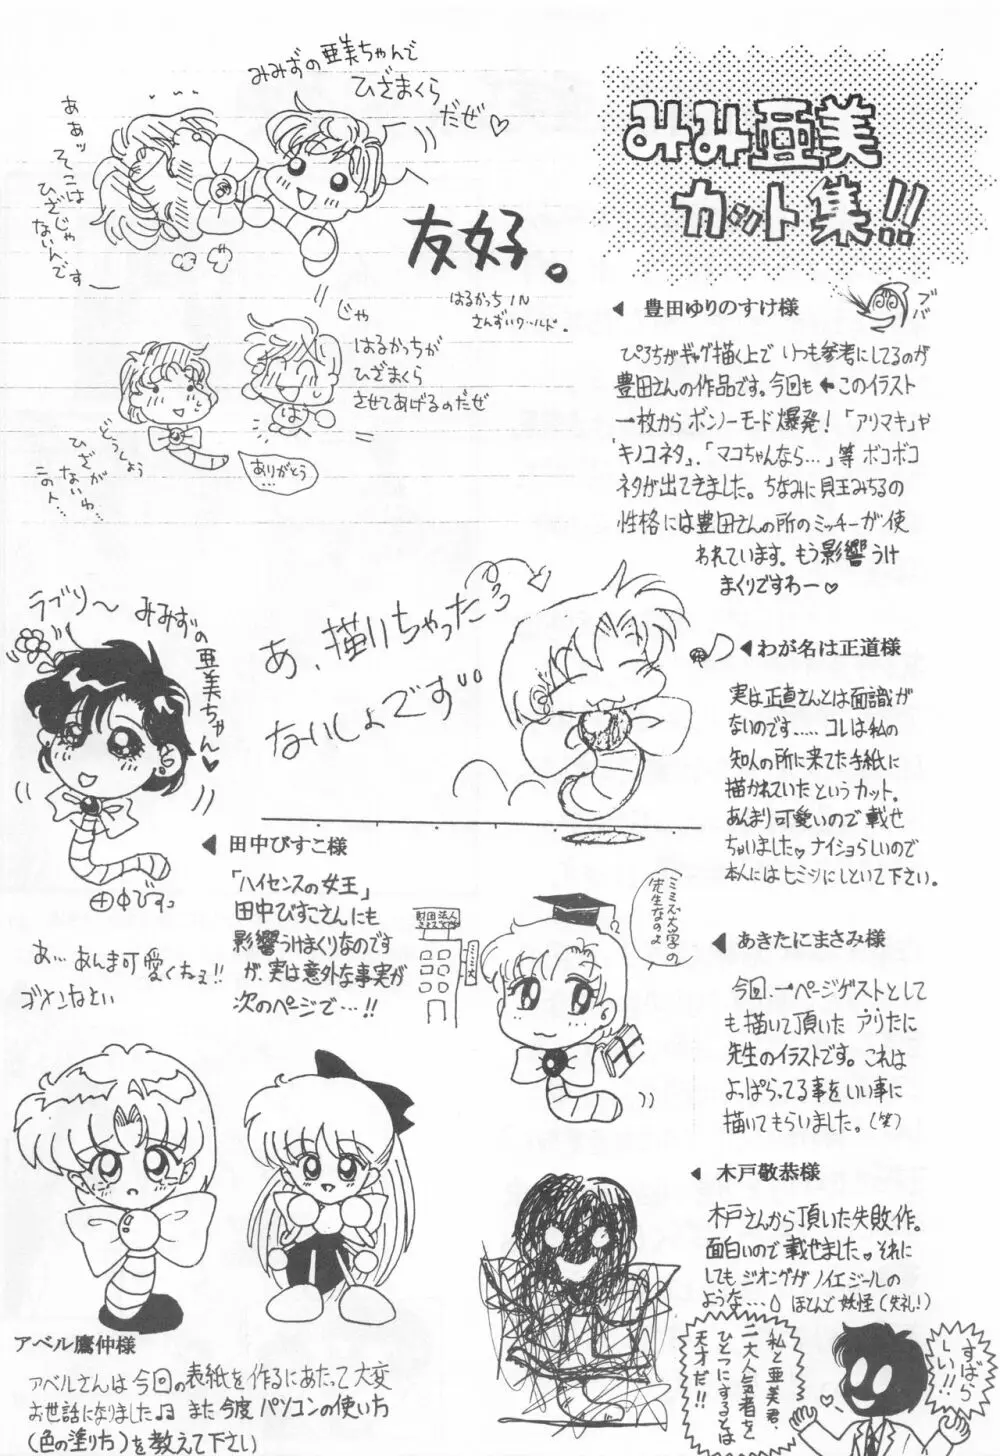 みみ亜美
カット集!!
みみずの亜美ちゃんで
ひざまくら
だぜ♡
ああッ
そこは
ひざじゃ
ないんです
友好。
はるかっち IN
さんずいワールド。
じゃ
はるかっちが
ひざまくら
させてあげるのだぜ
はぁ
ありがとう…
どうしよう
ひざが
ないわ…
この人…
◀ 豊田ゆりのすけ様
ブバ
ぴろちがギャグ描く上でいつも参考にしてるのが
豊田さんの作品です。今回も←このイラスト
一枚からボンノーモード爆発!「アリマキ」や
「キノコネタ」、「マコちゃんなら…」等ボコボコ
ネタが出てきました。ちなみに貝王みちるの
性格には豊田さんの所のミッチーが使
われています。もう影響うけ
まくりですわー♡
あ、描いちゃったろ
ないしょです
◀わが名は正道様
実は正直さんとは面識が
ないのです..... コレは私の
知人の所に来てた手紙に
描かれていたというカット。
あんまり可愛いので載せ
ちゃいました♡ナイショらしいので
本人にはヒミツにしといて下さい。
ラブリ〜
みみずの亜美ちゃん♡
田中びすこ
あ…あんま可愛くねェ!!
ゴメンなとい
◀ 田中びすこ様
「ハイセンスの女王」
田中びすこさんにも
影響うけまくりなのです
が、実は意外な事実が
次のページで…!!
財団法人
ミミズ大
ミミズ大学の
先生なのよ
◀ あきたにまさみ様
今回、一ページゲストとして
も描いて頂いた アリたに
先生のイラストです。これは
よっぱらってる事をいい事に
描いてもらいました。(笑)
◀ 木戸敬恭様
木戸さんから頂いた失敗作。
面白いので載せました♡それに
してもジオングがノイエジールの
ような…. ほとんど妖怪(失礼!)
アベル鷹仲様
アベルさんは今回の表紙を作るにあたって大変
お世話になりました♫また今度パソコンの使い方
(色の塗り方)を教えて下さい
すばら
しい!!
私と亜美君、
二大人気者を
ひとつにするとは
天才だ!!